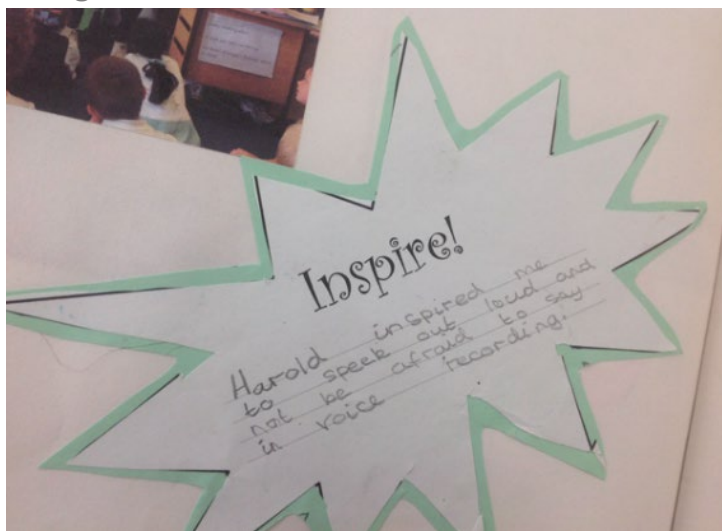 Inspire!
Harold inspired me
to speek out loud and
not be afraid to say
in voice recording.